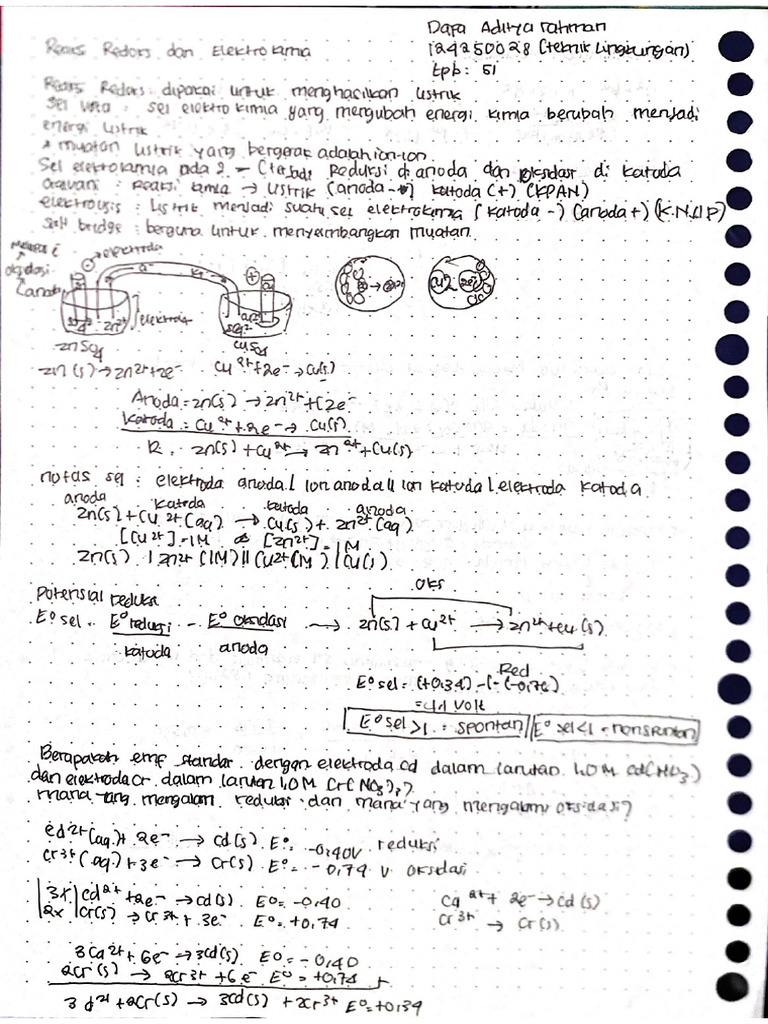 Dafa Aditya rahman
Reaksi Redoks dan Elektrokimia
124250028 (teknik Lingkungan)
tpb: 51
Reaksi Redoks: dipakai untuk menghasilkan listrik
Sel volta : sel elektrokimia yang mengubah energi kimia berubah menjadi
energi listrik
* muatan listrik yang bergerak adalah ion-ion.
Sel elektrokimia ada 2 - (terjadi Reduksi di anoda dan oksidasi di katoda
Galvani : Reaksi kimia → Listrik (anoda -) katoda (+) (KPAN)
elektrolisis : Listrik menjadi suatu sel elektrokimia (katoda -) (anoda +) (K.N.A.P)
Salt bridge : berguna untuk menyeimbangkan muatan.
elektroda
oksidasi
(anoda)
elektrolit
ZnSO4
CuSO4
Zn(s) → Zn2+ + 2e-
Cu2+ + 2e- → Cu(s)
Anoda = Zn(s) → Zn2+ + 2e-
Katoda : Cu2+ + 2e- → Cu(s)
R : Zn(s) + Cu2+ → Zn2+ + Cu(s)
notasi sel : elektroda anoda | Ion anoda || Ion katoda | elektroda katoda
anoda katoda katoda anoda
Zn(s) + Cu2+ (aq) → Cu(s) + Zn2+ (aq)
[Cu2+] = 1M & [Zn2+] = 1M
Zn(s) | Zn2+ (1M) || Cu2+ (1M) | Cu(s)
Potensial reduksi
oks
E° sel = E° reduksi - E° oksidasi → Zn(s) + Cu2+ → Zn2+ + Cu(s)
katoda anoda
Red
E° sel = (+0,34) - (-(-0,76)
= 1,1 volt
E° sel > 1 = spontan | E° sel < 1 = nonspontan
Berapakah emf standar dengan elektroda Cd dalam larutan 1,0 M Cd(NO3)
dan elektroda Cr dalam larutan 1,0 M Cr(NO3)3?
mana yang mengalami reduksi dan mana yang mengalami oksidasi?
Cd2+ (aq) + 2e- → Cd(s) E° = -0,40V reduksi
Cr3+ (aq) + 3e- → Cr(s) E° = -0,74 V oksidasi
3x | Cd2+ + 2e- → Cd(s) E° = -0,40
2x | Cr(s) → Cr3+ + 3e- E° = +0,74
Cd2+ + 2e- → Cd(s)
Cr3+ → Cr(s)
3Cd2+ + 6e- → 3Cd(s) E° = -0,40
2Cr(s) → 2Cr3+ + 6e- E° = +0,74 +
3Cd2+ + 2Cr(s) → 3Cd(s) + 2Cr3+ E° = +0,34